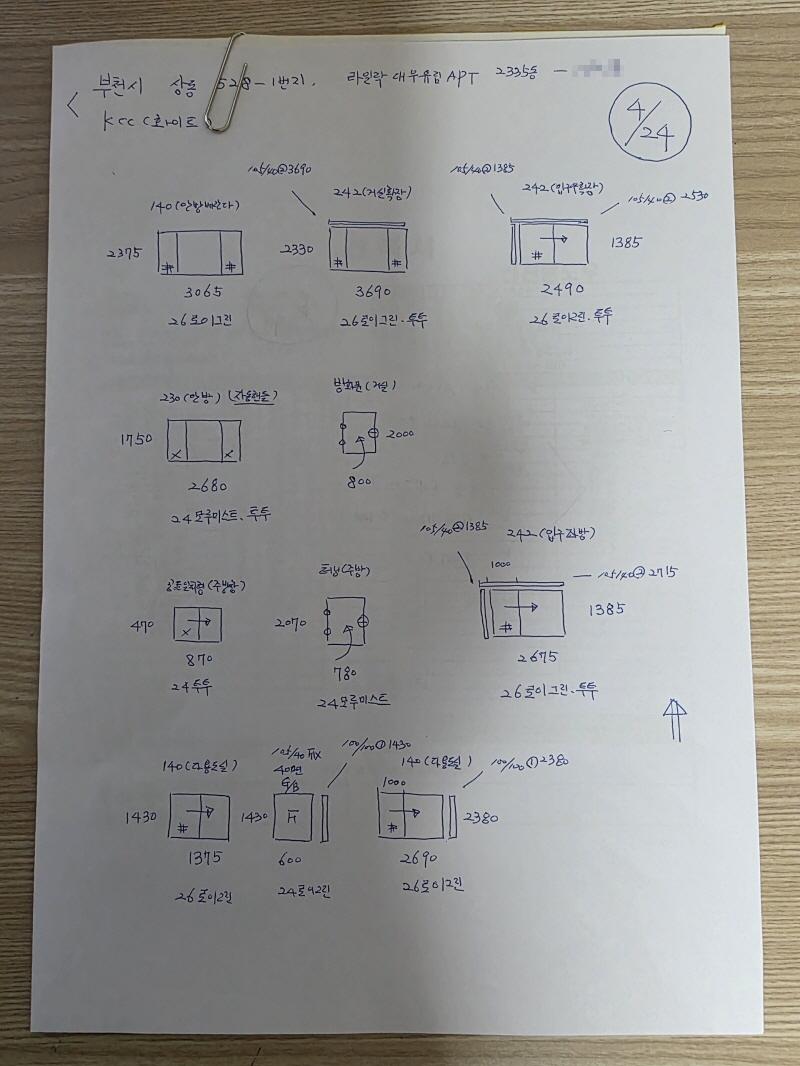 부천시 상동 528-1번지. 라일락 대우유림 APT 2335동 -
KCC (화이트
4/24
105/40②3690
105/40②1385
140(안방베란다)
242(거실확장)
242(입구우확장)
105/40② 2530
2375
2330
1385
#
#
#
#
#
3065
3690
2490
26로이그린
26로이그린·투투
26로이그린·투투
230(안방) (자동핸들)
방화문(거실)
1750
2000
X
X
2680
800
24모루미스트·투투
105/40②1385
242(입구좌방)
1000
105/40②2715
(주방창)
터닝(주방)
470
2070
1385
X
#
870
780
2675
24투투
24모루미스트
26로이그린·투투
140(다용도실)
105/40 FIX
40면
G/B
100/100①1430
140(다용도실)
100/100①2380
1000
1430
1430
2380
#
H
#
1375
600
2690
26로이그린
24로이그린
26로이그린